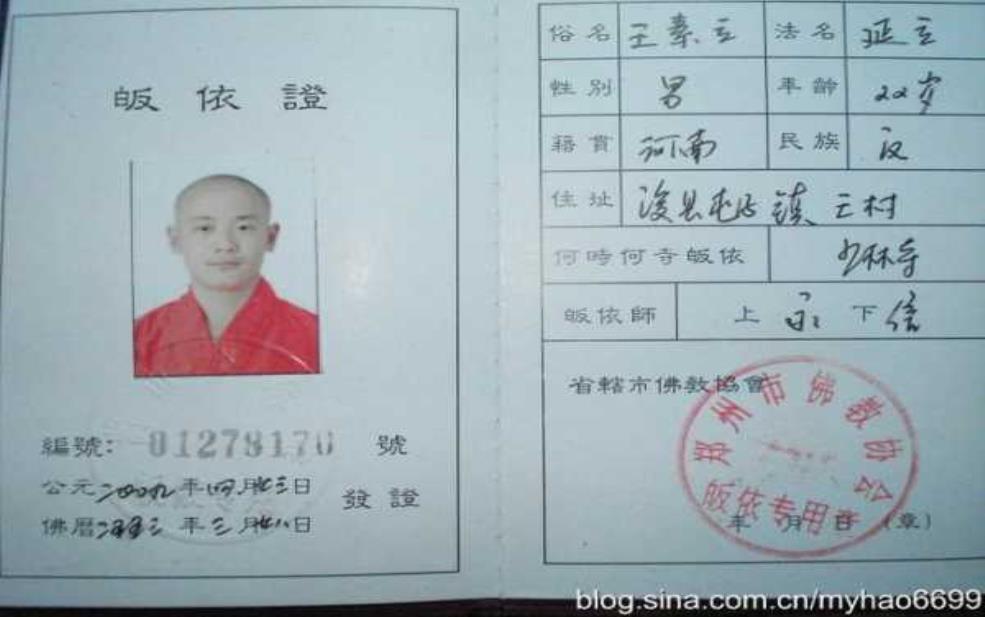 皈依證
編號: 01278170 號
公元二〇〇九年四月廿三日
發證
佛曆二五五三年三月廿八日
俗名 王素立 法名 延立
性別 男 年齡 22岁
籍貫 河南 民族 汉
住址 浚县屯子镇 王村
何時何寺皈依 少林寺
皈依師 上 永 下 信
省轄市佛教協會
郑州市佛教协会
皈依专用章
年 月 日 (章)
blog.sina.com.cn/myhao6699